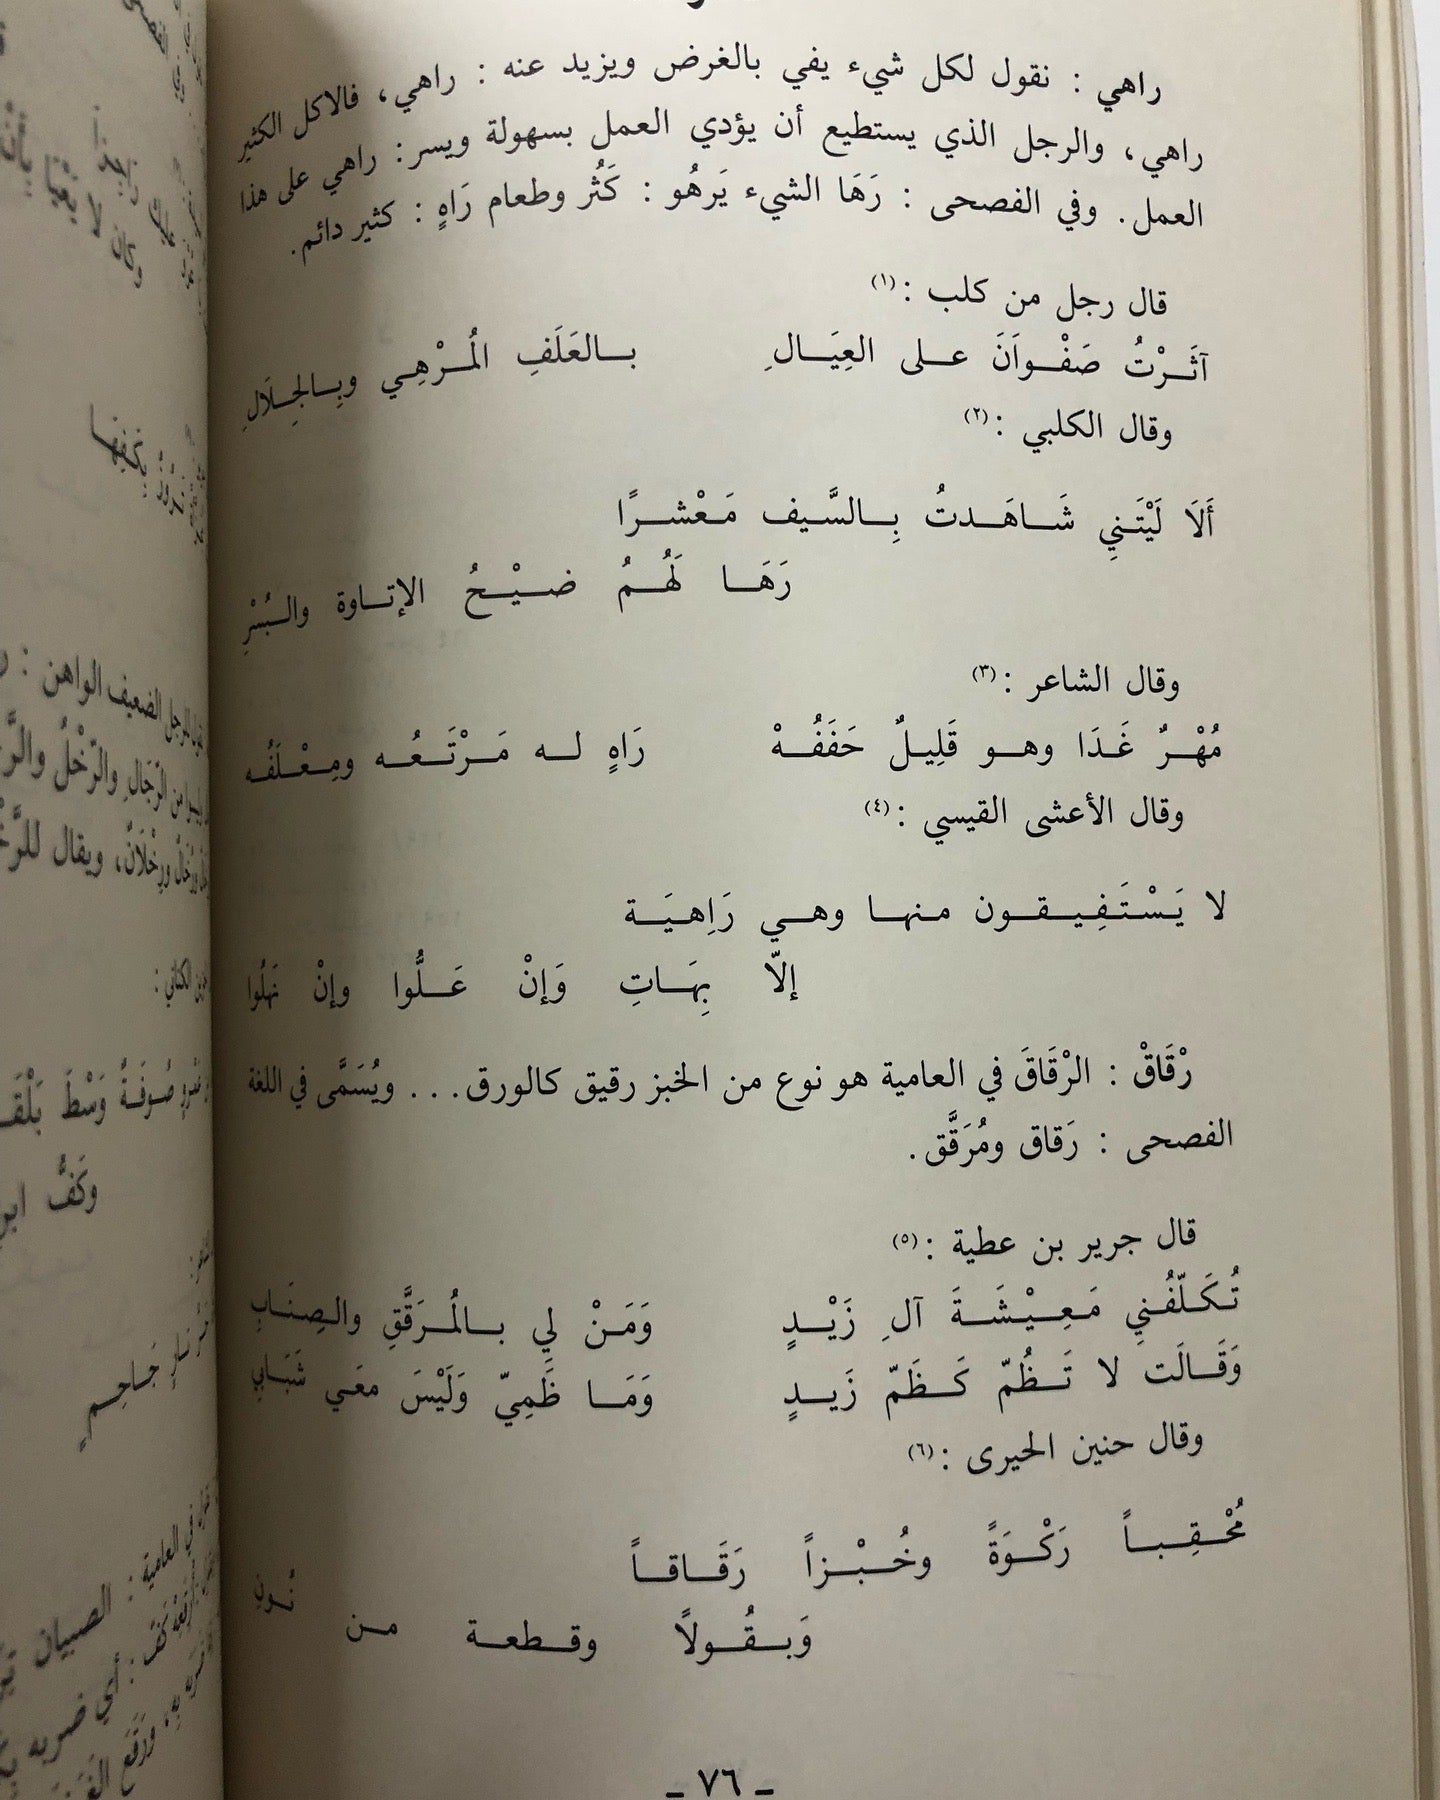 راهي : نقول لكل شيء يفي بالغرض ويزيد عنه : راهي، فالاكل الكثير
راهي، والرجل الذي يستطيع أن يؤدي العمل بسهولة ويسر : راهي على هذا
العمل. وفي الفصحى : رَهَا الشيء يَرهُو : كَثُر وطعام رَاهٍ : كثير دائم.
قال رجل من كلب :(١)
آثَرْتُ صَفْوَانَ على العِيَالِ بالعَلَفِ المُرْهِي وبِالجِلَالِ
وقال الكلبي :(٢)
أَلَا لَيْتَنِي شَاهَدتُ بِالسَّيف مَعْشرًا
رَهَا لَهُمُ ضيْحُ الإتاوة والبُسْرِ
وقال الشاعر :(٣)
مُهْرٌ غَدَا وهو قَلِيلٌ حَفَفُهْ رَاهٍ له مَرْتَعُه ومِعْلَفُه
وقال الأعشى القيسي :(٤)
لا يَسْتَفِيقون منها وهي رَاهِيَة
إلّا بِهَاتِ وَإنْ عَلُّوا وإنْ نَهلُوا
رْقَاقْ : الرْقَاقَ في العامية هو نوع من الخبز رقيق كالورق... ويُسَمَّى في اللغة
الفصحى : رَقاق ومُرَقَّق.
قال جرير بن عطية :(٥)
تُكَلّفُنِي مَعِيْشَةَ آلِ زَيْدٍ وَمَنْ لي بالمُرَقَّقِ والصِنَابِ
وَقَالَت لا تَظُمّ كَظَمّ زَيدٍ وَمَا ظَمِيّ وَلَيْسَ معَي شَبَابي
وقال حنين الحيرى :(٦)
مُحْقِباً رَكْوَةً وخُبْزاً رَقَاقاً
وَبقُولاً وقطعة من نْونِ
- ٧٦ -
الرجل الضعيف الواهن :
من الرِّجَالِ والرَّخْلُ
ورِخْلَانٌ، ويقال
الكناني :
صُوفَةٌ وَسْطَ
وكَفُّ
جَاحِمٍ
في العامية : الصبيان
أي ضربه
وكان لا